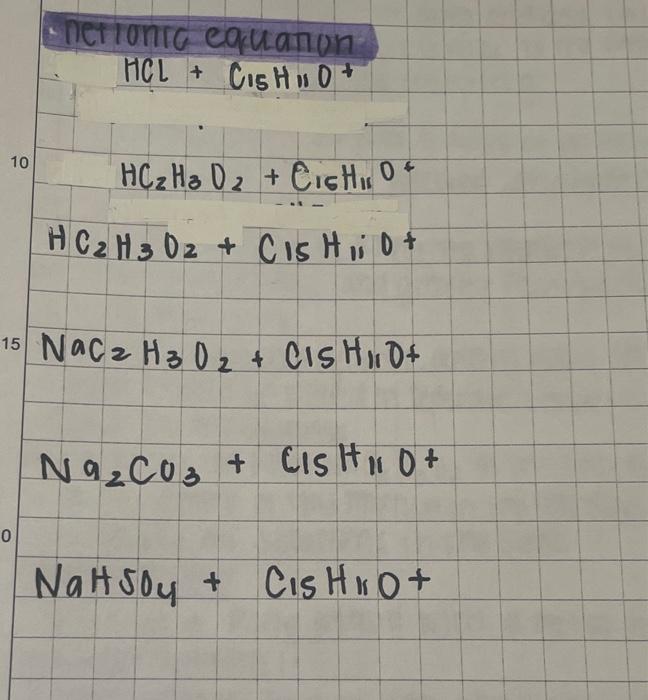 net ionic equation
HCL + C15H11O+
10
HC2H3O2 + C15H11O+
HC2H3O2 + C15H11O+
15 NaC2H3O2 + C15H11O+
Na2CO3 + C15H11O+
0
NaHSO4 + C15H11O+